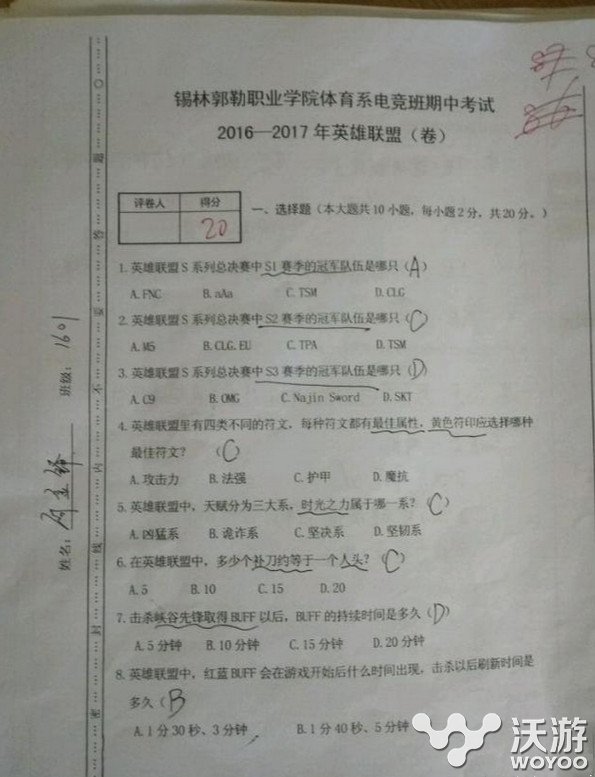 锡林郭勒职业学院体育系电竞班期中考试
2016—2017 年英雄联盟（卷）
评卷人 得分
20
一、选择题（本大题共 10 小题，每小题 2 分，共 20 分。）
1. 英雄联盟 S 系列总决赛中 S1 赛季的冠军队伍是哪只（A）
A. FNC B. aAa C. TSM D. CLG
2. 英雄联盟 S 系列总决赛中 S2 赛季的冠军队伍是哪只（C）
A. M5 B. CLG. EU C. TPA D. TSM
3. 英雄联盟 S 系列总决赛中 S3 赛季的冠军队伍是哪只（D）
A. C9 B. OMG C. Najin Sword D. SKT
4. 英雄联盟里有四类不同的符文，每种符文都有最佳属性，黄色符印应选择哪种
最佳符文？（C）
A. 攻击力 B. 法强 C. 护甲 D. 魔抗
5. 英雄联盟中，天赋分为三大系，时光之力属于哪一系？（C）
A. 凶猛系 B. 诡诈系 C. 坚决系 D. 坚韧系
6. 在英雄联盟中，多少个补刀约等于一个人头？（C）
A. 5 B. 10 C. 15 D. 20
7. 击杀峡谷先锋取得 BUFF 以后，BUFF 的持续时间是多久（D）
A. 5 分钟 B. 10 分钟 C. 15 分钟 D. 20 分钟
8. 英雄联盟中，红蓝 BUFF 会在游戏开始后什么时间出现，击杀以后刷新时间是
多久（B）
A. 1 分 30 秒、3 分钟 B. 1 分 40 秒、5 分钟
班级：1601
姓名：
密 封 线 内 不 要 答 题
沃游
WOYOO